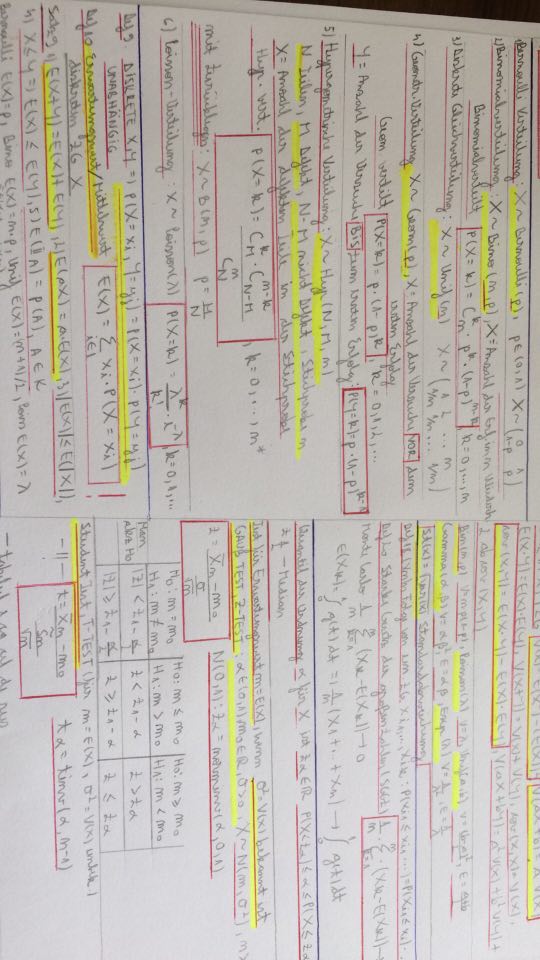 Bernoulli Verteilung: X ~ Bernoulli(p), p∈(0,1) X ~ (0 1
1-p p)
2) Binomialverteilung: X ~ Bino(m,p), X = Anzahl der Erf. in m Versuch
Binomialverteilt P(X=k) = C_m^k · p^k · (1-p)^{m-k}, k=0,...,m
3) Diskrete Gleichverteilung: X ~ Unif(m) X ~ (1 2 ... m
1/m 1/m ... 1/m)
4) Geometr. Verteilung X ~ Geom(p), X = Anzahl der Versuche VOR dem
ersten Erfolg
Geom. verteilt P(X=k) = p·(1-p)^k, k=0,1,2,...
Y = Anzahl der Versuche BIS zum ersten Erfolg: P(Y=k)=p·(1-p)^{k-1}
5) Hypergeometrische Verteilung: X ~ Hyp(N,M,m)
N Teilen, M Defekt, N-M nicht Defekt, Stichprobe m
X = Anzahl der defekten Teile in der Stichprobe
Hyp. vert. P(X=k) = C_M^k · C_{N-M}^{m-k} / C_N^m, k=0,...,m*
mit Zurücklegen: X ~ B(m,p) p = M/N
6) Poisson-Verteilung: X ~ Poisson(λ) P(X=k) = λ^k/k! · e^{-λ}, k=0,1,...
Def 9 DISKRETE X,Y => P(X=xi, Y=yj) = P(X=xi)·P(Y=yj)
UNABHÄNGIG
Def 10 Erwartungswert/Mittelwert E(X) = Σ_{i∈I} xi·P(X=xi) !
diskreten ZG X
Satz 9 1) E(X+Y)=E(X)+E(Y), 2) E(aX)=a·E(X), 3) |E(X)|≤E(|X|),
4) X≤Y => E(X)≤E(Y), 5) E(1_A) = P(A), A∈K
Bernoulli E(X)=p, Bino E(X)=m·p, Unif E(X)=(m+1)/2, Pois E(X)=λ
E(X·Y)=E(X)·E(Y), V(X+Y)=V(X)+V(Y), cov(X,X)=V(X),
cov(X,Y) = E(X·Y)-E(X)·E(Y), V(aX+bY)=a²V(X)+b²V(Y)+
2ab cov(X,Y)
Bin(m,p) V=mp(1-p), Poisson(λ) V=λ, Unif(a,b) V=(b-a)²/12, E=(a+b)/2
Gamma(α,β) V=αβ², E=αβ, Exp(λ) V=1/λ², E=1/λ
Std(X)=√Var(X) Standardabweichung
Def 20 Starkes Gesetz der großen Zahlen (SGGZ) 1/m · Σ_{k=1}^m (Xk-E(Xk))→
Monte Carlo 1/m Σ_{k=1}^m (Xk-E(Xk))→0
E(Xk)=∫g(t)dt => 1/m (X1+...+Xm) → ∫g(t)dt
Quantil der Ordnung α für X ist zα∈R P(X<zα)≤α≤P(X≤zα
z½ - Median
Test für Erwartungswert m=E(X), wenn σ²=V(X) bekannt ist
GAUß TEST, Z-TEST: α∈(0,1), m0∈R, σ>0, X~N(m,σ²),
z = (X̄m-m0)/(σ/√m) N(0,1): zα=norminv(α,0,1)
H0: m=m0 H0: m≤m0 H0: m≥m0
H1: m≠m0 H1: m>m0 H1: m<m0
Man akz H0 |z|<z1-α/2 z<z1-α z>zα
|z|≥z1-α/2 z≥z1-α z≤zα
Student Test, T-TEST (für m=E(X), σ²=V(X) unbek.)
-11- t = (X̄m-m0)/(S̃m/√m) tα=tinv(α,m-1)